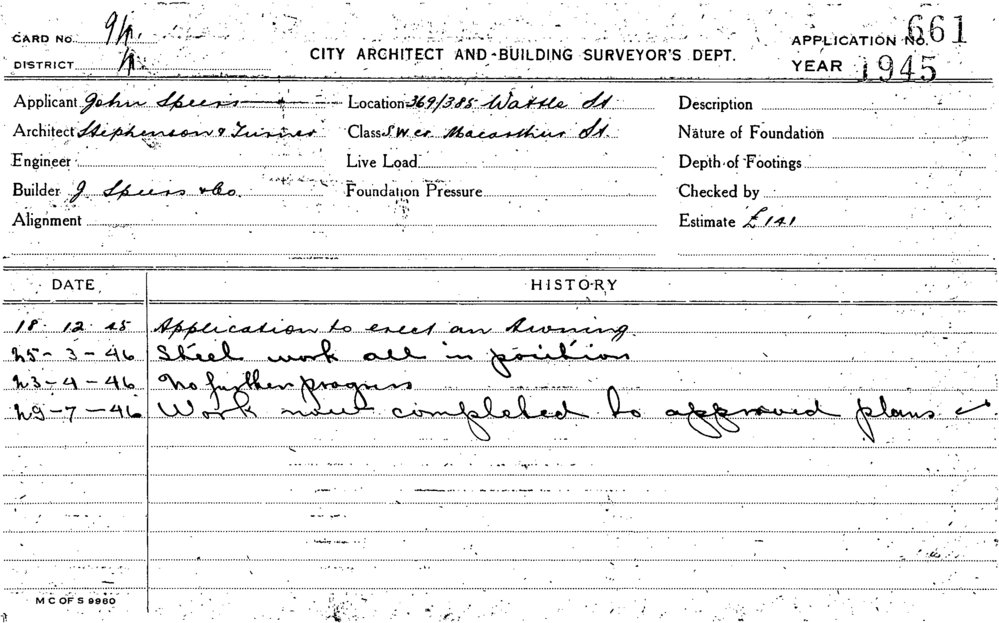 CARD No.
DISTRICT
CITY ARCHITECT AND BUILDING SURVEYOR'S DEPT.
APPLICATION No. 661
YEAR 1945
Applicant John Speers Location 369/385 Wattle St Description
Architect Stephenson & Turner Class S.W. cr Macarthur St. Nature of Foundation
Engineer Live Load Depth of Footings
Builder J Speers & Co. Foundation Pressure Checked by
Alignment Estimate £141
DATE HISTORY
18. 12. 45 Application to erect an Awning.
25-3-46 Steel work all in position
23-4-46 No further progress
29-7-46 Work now completed to approved plans
M C OF S 9980